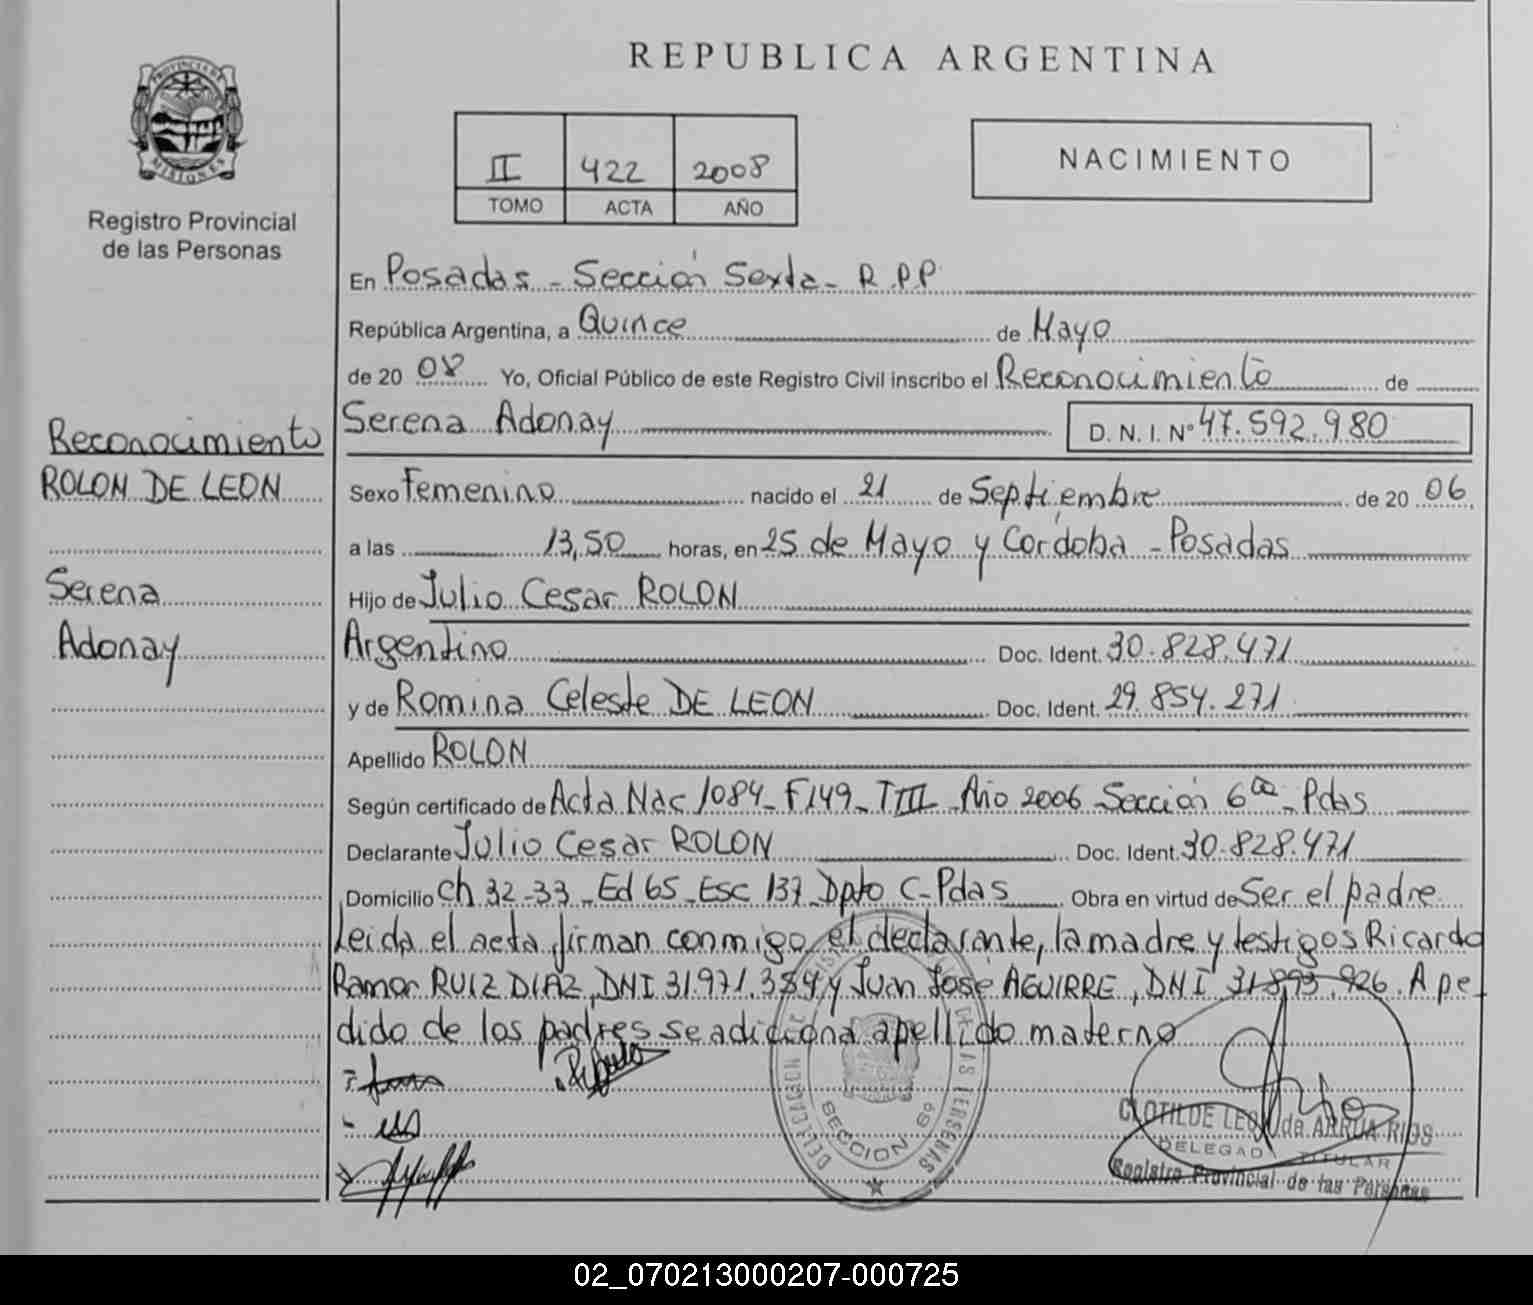 REPUBLICA ARGENTINA
PROVINCIA DE
MISIONES
Registro Provincial
de las Personas
II 422 2008
TOMO ACTA AÑO
NACIMIENTO
En Posadas - Sección Sexta - R.P.P.
República Argentina, a Quince de Mayo
de 20 08 Yo, Oficial Público de este Registro Civil inscribo el Reconocimiento de
Serena Adonay D. N. I. Nº 47.592.980
Reconocimiento
ROLON DE LEON
Serena
Adonay
Sexo Femenino nacido el 21 de Septiembre de 20 06
a las 13,50 horas, en 25 de Mayo y Córdoba - Posadas
Hijo de Julio Cesar ROLON
Argentino Doc. Ident. 30.828.471
y de Romina Celeste DE LEON Doc. Ident. 29.854.271
Apellido ROLON
Según certificado de Acta Nac 1084 - F149 - TIII Año 2006 Sección 6ta - Pdas
Declarante Julio Cesar ROLON Doc. Ident. 30.828.471
Domicilio Ch 32-33 - Ed 65 - Esc 137 - Dpto C - Pdas Obra en virtud de Ser el padre
Leida el acta firman conmigo el declarante, la madre y testigos Ricardo
Ramon RUIZ DIAZ, DNI 31.971.384 y Juan José AGUIRRE, DNI 31.893.926. A pe
dido de los padres se adiciona apellido materno
SECCION 6º
CLOTILDE LEON de ARRUA RIOS
DELEGADO TITULAR
Registro Provincial de las Personas
02_070213000207-000725